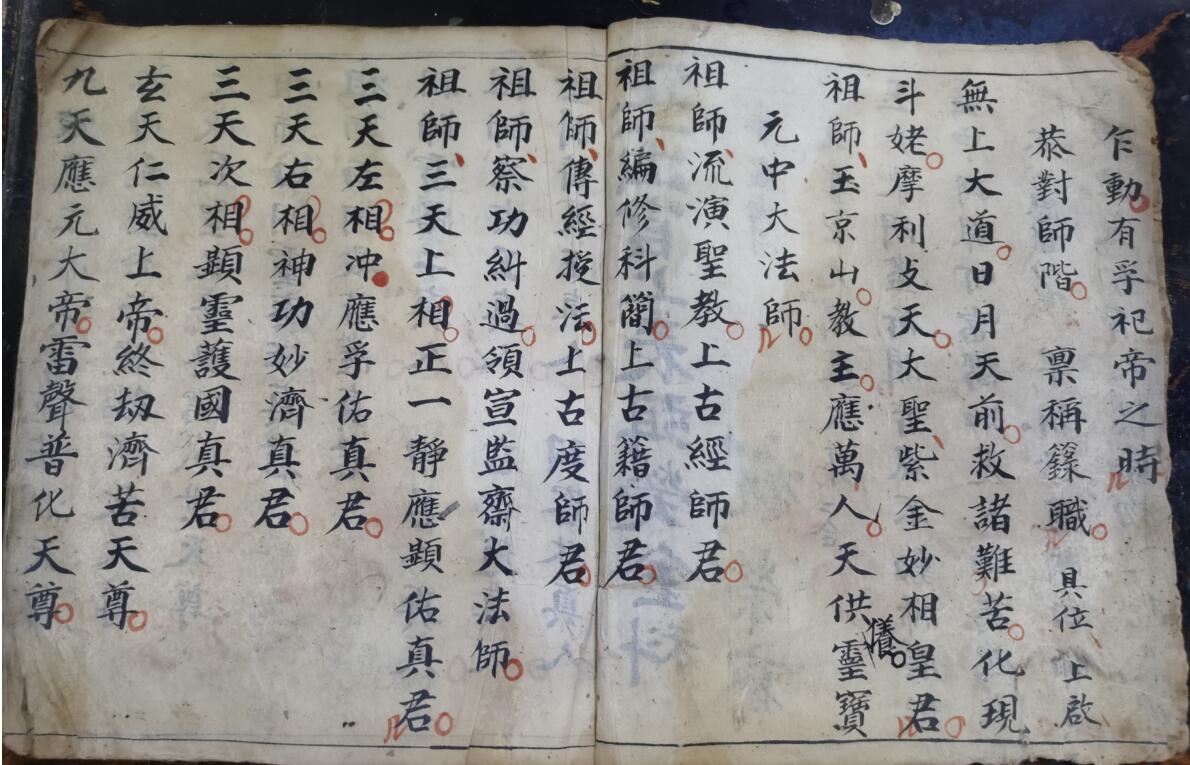 乍動有孚祀帝之時
恭對師階 稟稱籙職 具位 上啟
無上大道日月天前救諸難苦化現
斗姥摩利攴天大聖紫金妙相皇君
祖師玉京山教主應萬人天供養靈寶
元中大法師
祖師流演聖教上古經師君
祖師編修科簡上古籍師君
祖師傳經授法上古度師君
祖師察功糾過領宣監齋大法師
祖師三天上相正一靜應顯佑真君
三天左相冲應孚佑真君
三天右相神功妙濟真君
三天次相顕靈護國真君
玄天仁威上帝終劫濟苦天尊
九天應元大帝雷聲普化天尊